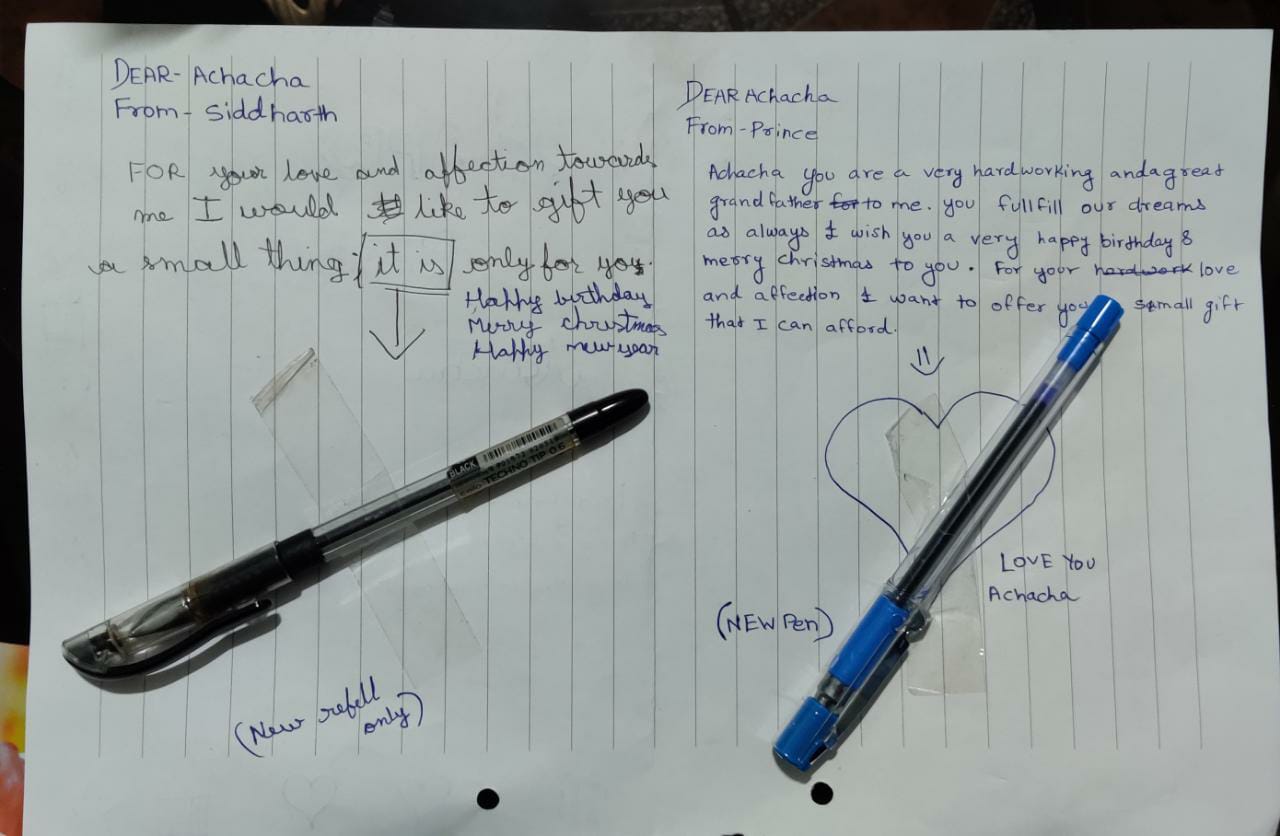 DEAR- Achacha
From- Siddharth
FOR your love and affection towards
me I would like to gift you
a small thing: it is only for you.
Happy birthday
Merry christmas
Happy new year
BLACK
TECHNO TIP 0.6
(New refell
only)
DEAR Achacha
From- Prince
Achacha you are a very hardworking andagreat
grandfather for to me. you fullfill our dreams
as always I wish you a very happy birthday &
merry christmas to you. For your hardwork love
and affection I want to offer you small gift
that I can afford.
LOVE YOU
Achacha
(NEW Pen)